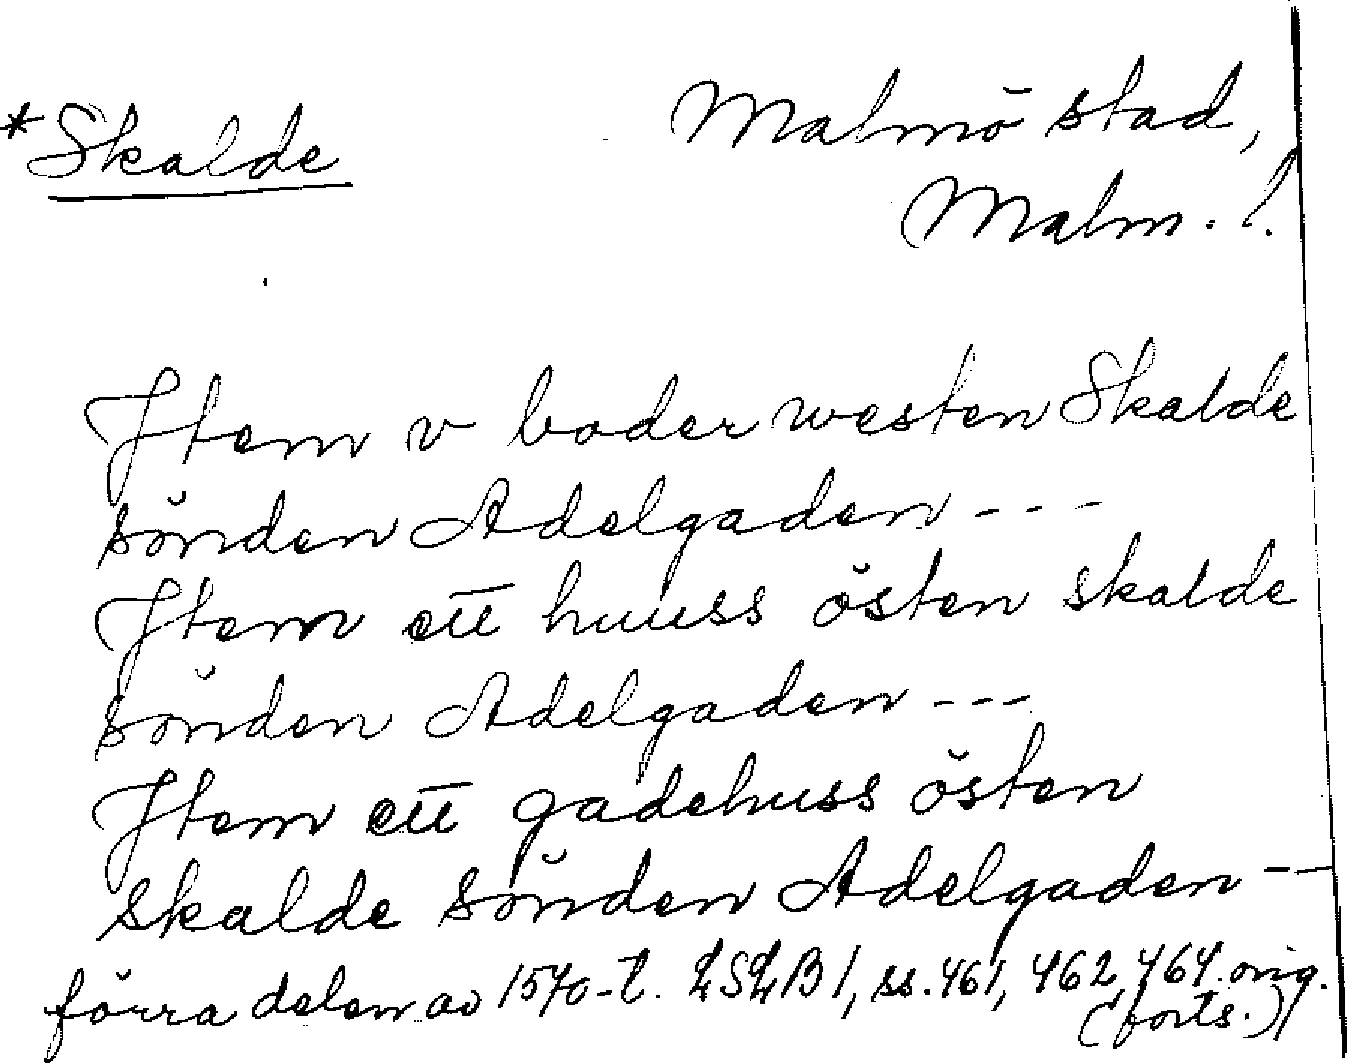 *Skalde
Malmö stad,
Malm. l.
Jtem v boder westen Skalde
sönden Adelgaden ---
Jtem ett huuss östen skalde
sönden Adelgaden ---
Jtem ett gadehuss östen
skalde sönden Adelgaden --
förra delen av 1570-t. LSLB 1, ss. 461, 462, 464. orig.
(forts.)